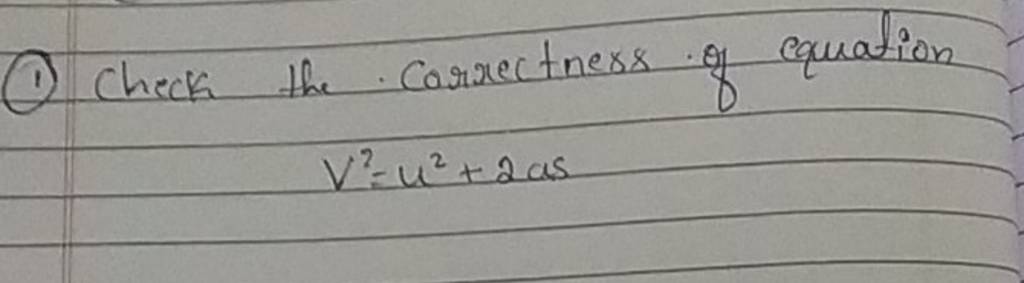 ① Check the . Correctness . of equation
V² = u² + 2as